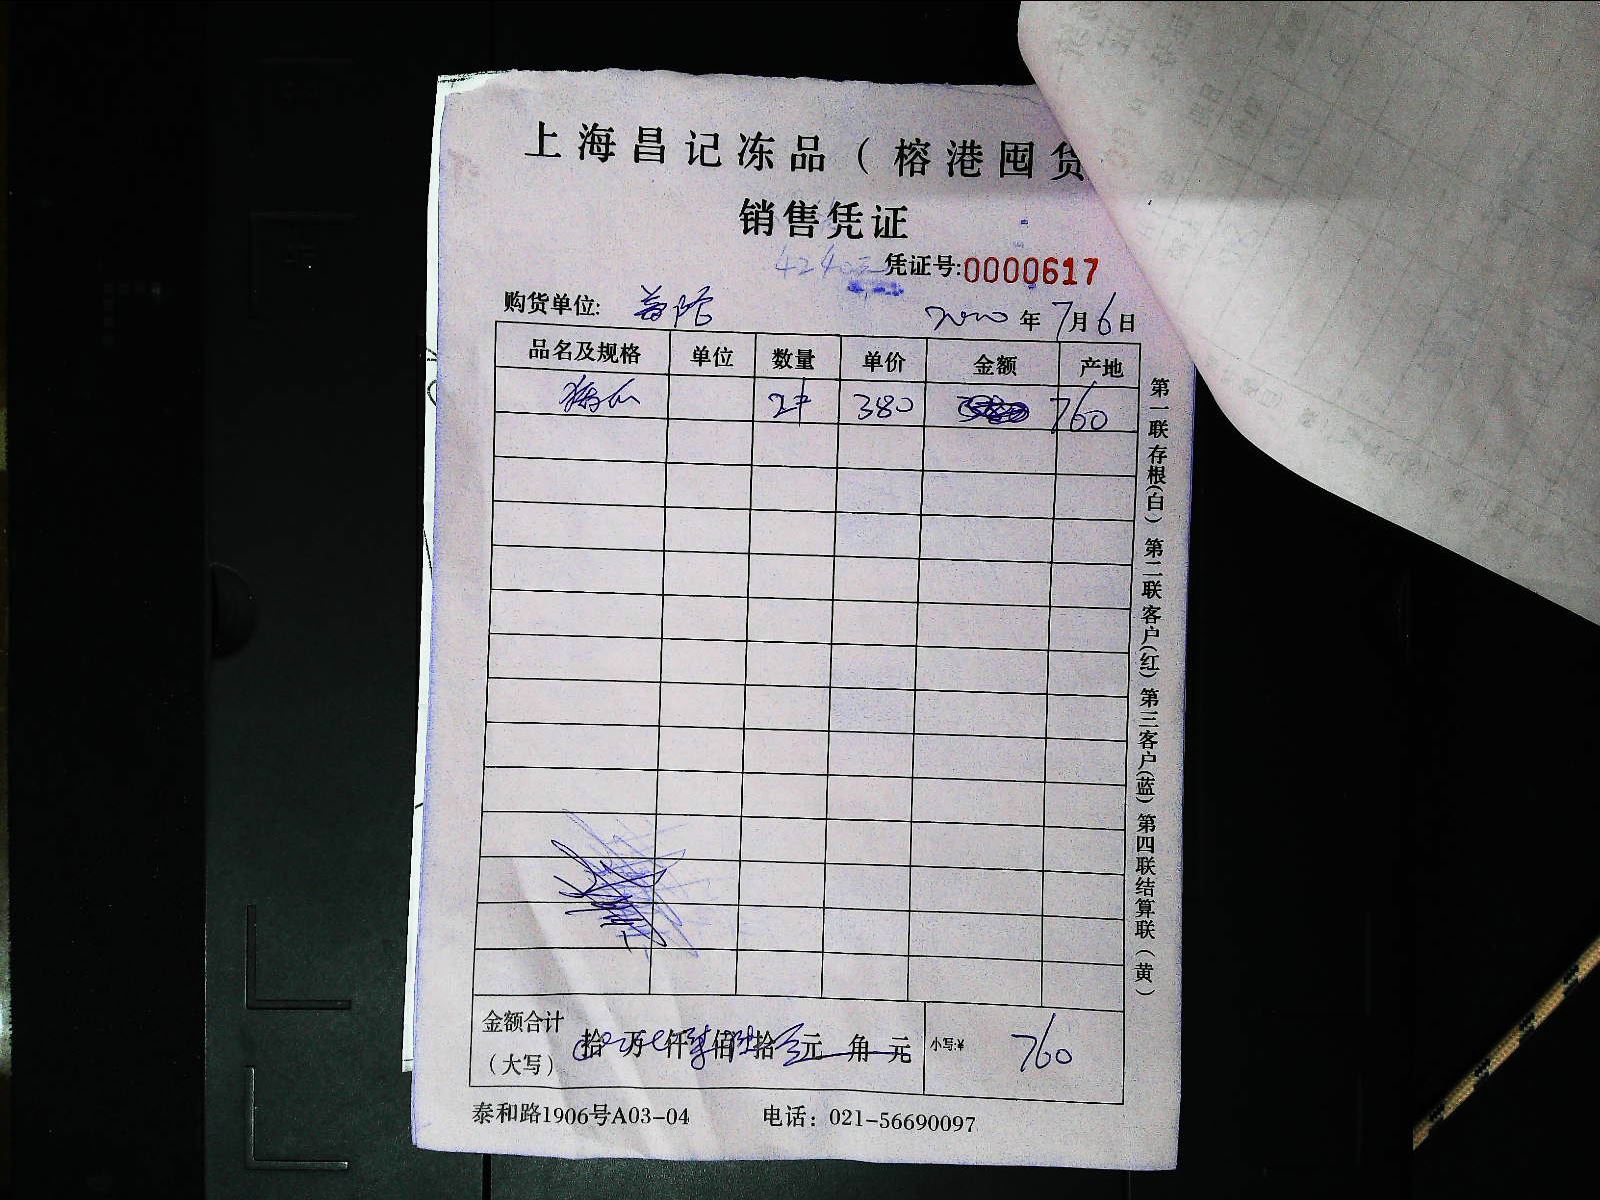 上海昌记冻品（榕港囤货
销售凭证
凭证号:0000617
购货单位:
2020年7月6日
品名及规格 单位 数量 单价 金额 产地
2件 380 760
金额合计（大写） 拾 万 仟 柒佰 陆拾 元 角 元 小写:¥ 760
泰和路1906号A03-04 电话：021-56690097
第一联存根（白）第二联客户（红）第三客户（蓝）第四联结算联（黄）